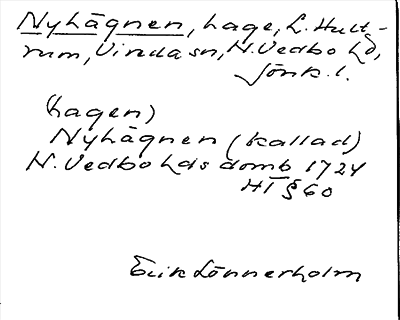 Nyhägnen, hage, L. Hult-
rum, Vinda sn, N. Vedbo hd,
Jönk. l.
(hagen)
Nyhägnen (kallad)
N. Vedbo hds domb 1724
HT § 60
Erik Lönnerholm